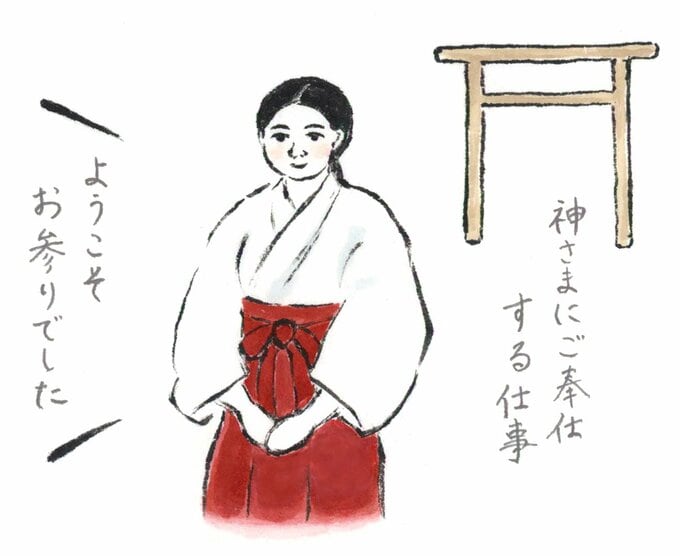 神さまにご奉仕
する仕事
ようこそ
お参りでした